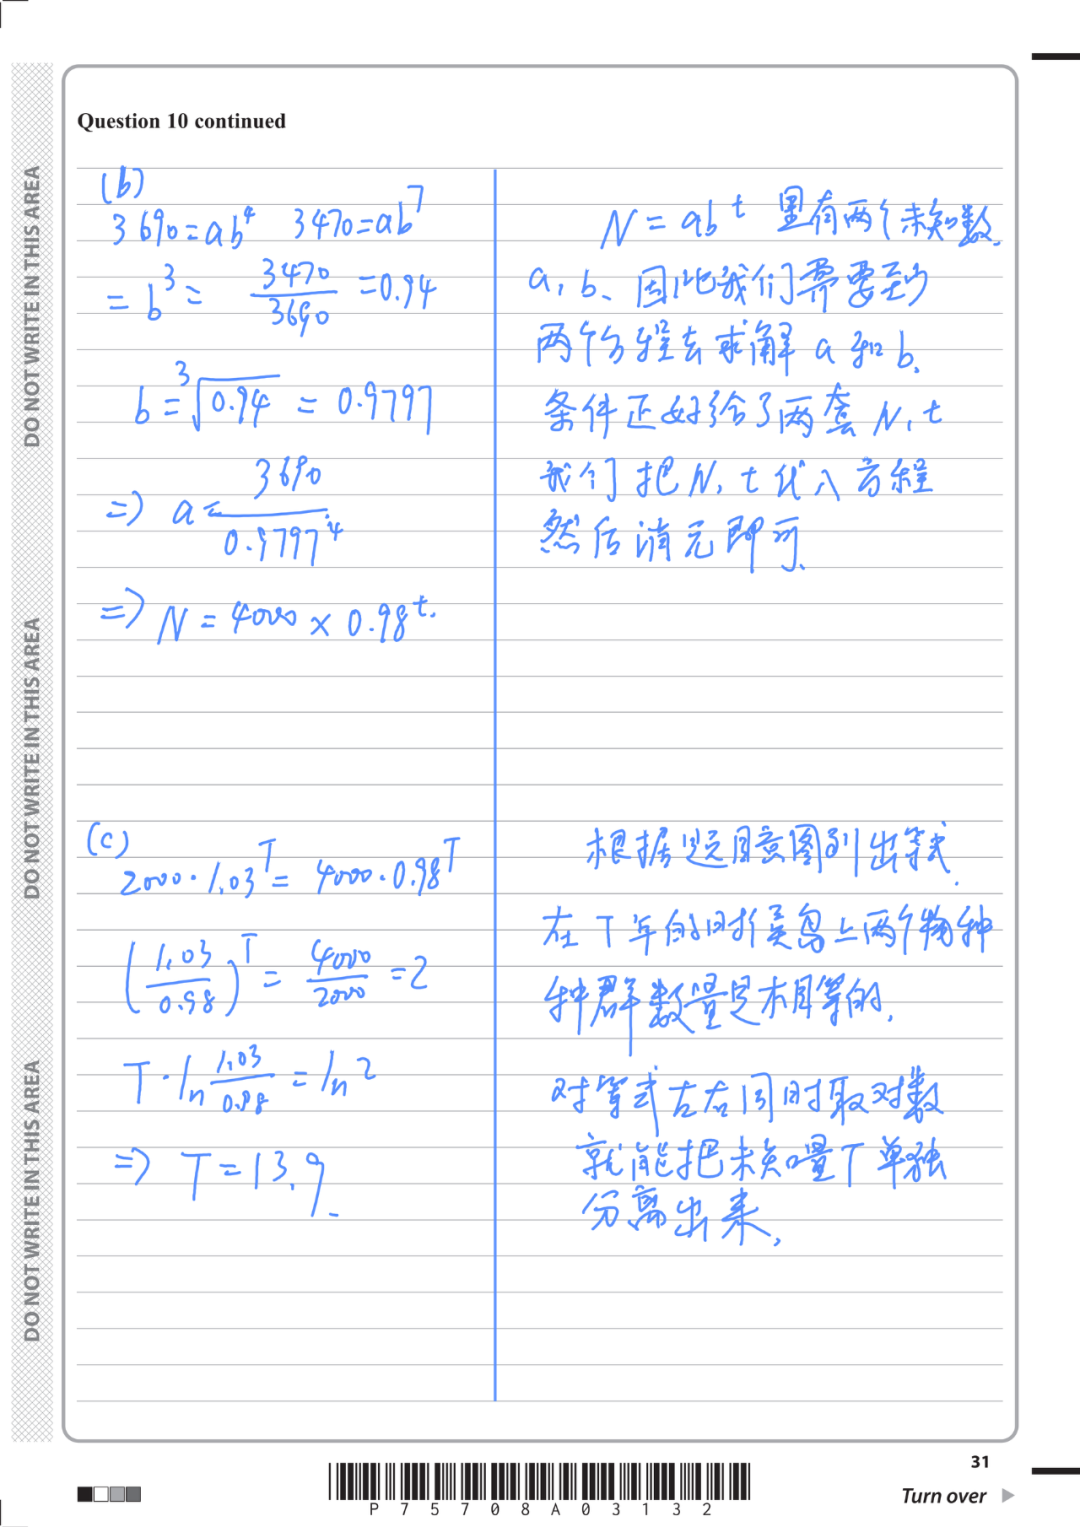 DO NOT WRITE IN THIS AREA
DO NOT WRITE IN THIS AREA
DO NOT WRITE IN THIS AREA
Question 10 continued
(b)
3690=ab⁴ 3470=ab⁷
= b³ = 3470/3690 =0.94
b=³√0.94 = 0.9797
=> a= 3690/0.9797⁴
=> N = 4000 × 0.98ᵗ.
N = abᵗ 里有两个未知数.
a, b、因此我们需要到
两个方程去求解 a 和 b.
条件正好给了两套 N, t
我们把 N, t 代入方程
然后消元即可.
(c)
2000·1.03ᵀ= 4000·0.98ᵀ
(1.03/0.98)ᵀ = 4000/2000 =2
T·ln 1.03/0.98 = ln 2
=> T=13.9.
根据题目意图列出等式.
在 T 年的时候岛上两个物种
种群数量是相等的.
对等式左右同时取对数
就能把未知量 T 单独
分离出来.
31
P75708A03132
Turn over